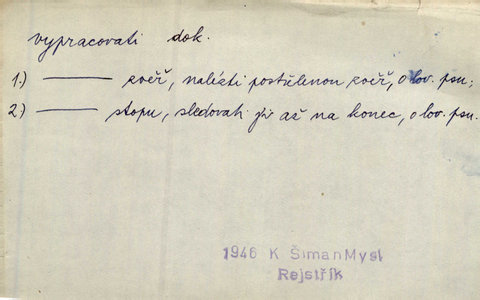 vypracovati dok.
1.) ——— zvěř, nalézti postřelenou zvěř, o lov. psu;
2) ——— stopu, sledovati ji až na konec, o lov. psu.
1946 K. ŠimanMysl
Rejstřík